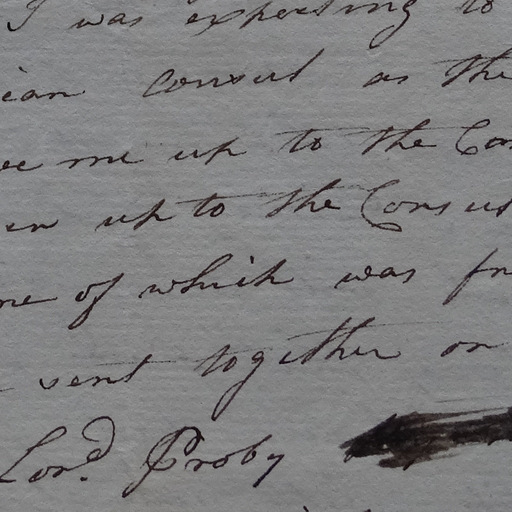 I was expecting to
ian consul as the
me up to the Con
up to the Consul
ne of which was fr
sent together on
Lord. Proby